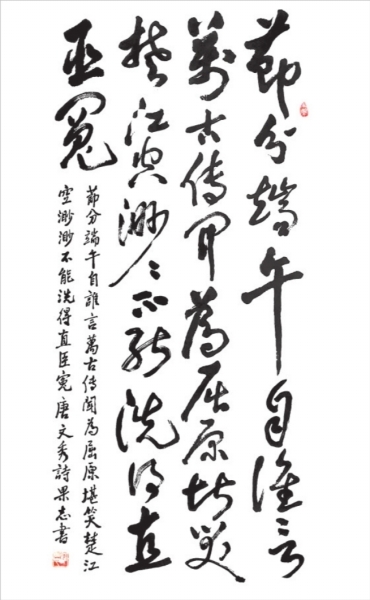 節分端午自誰言
萬古傳聞為屈原堪笑
楚江空渺々不能洗得直
臣冤
節分端午自誰言萬古傳聞為屈原堪笑楚江
空渺渺不能洗得直臣寃唐文秀詩果志書